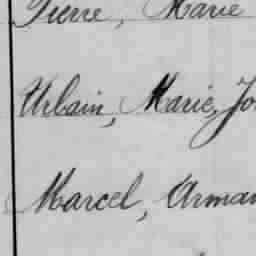 Pierre, Marie
Urbain, Marie, Jo
Marcel, Arman